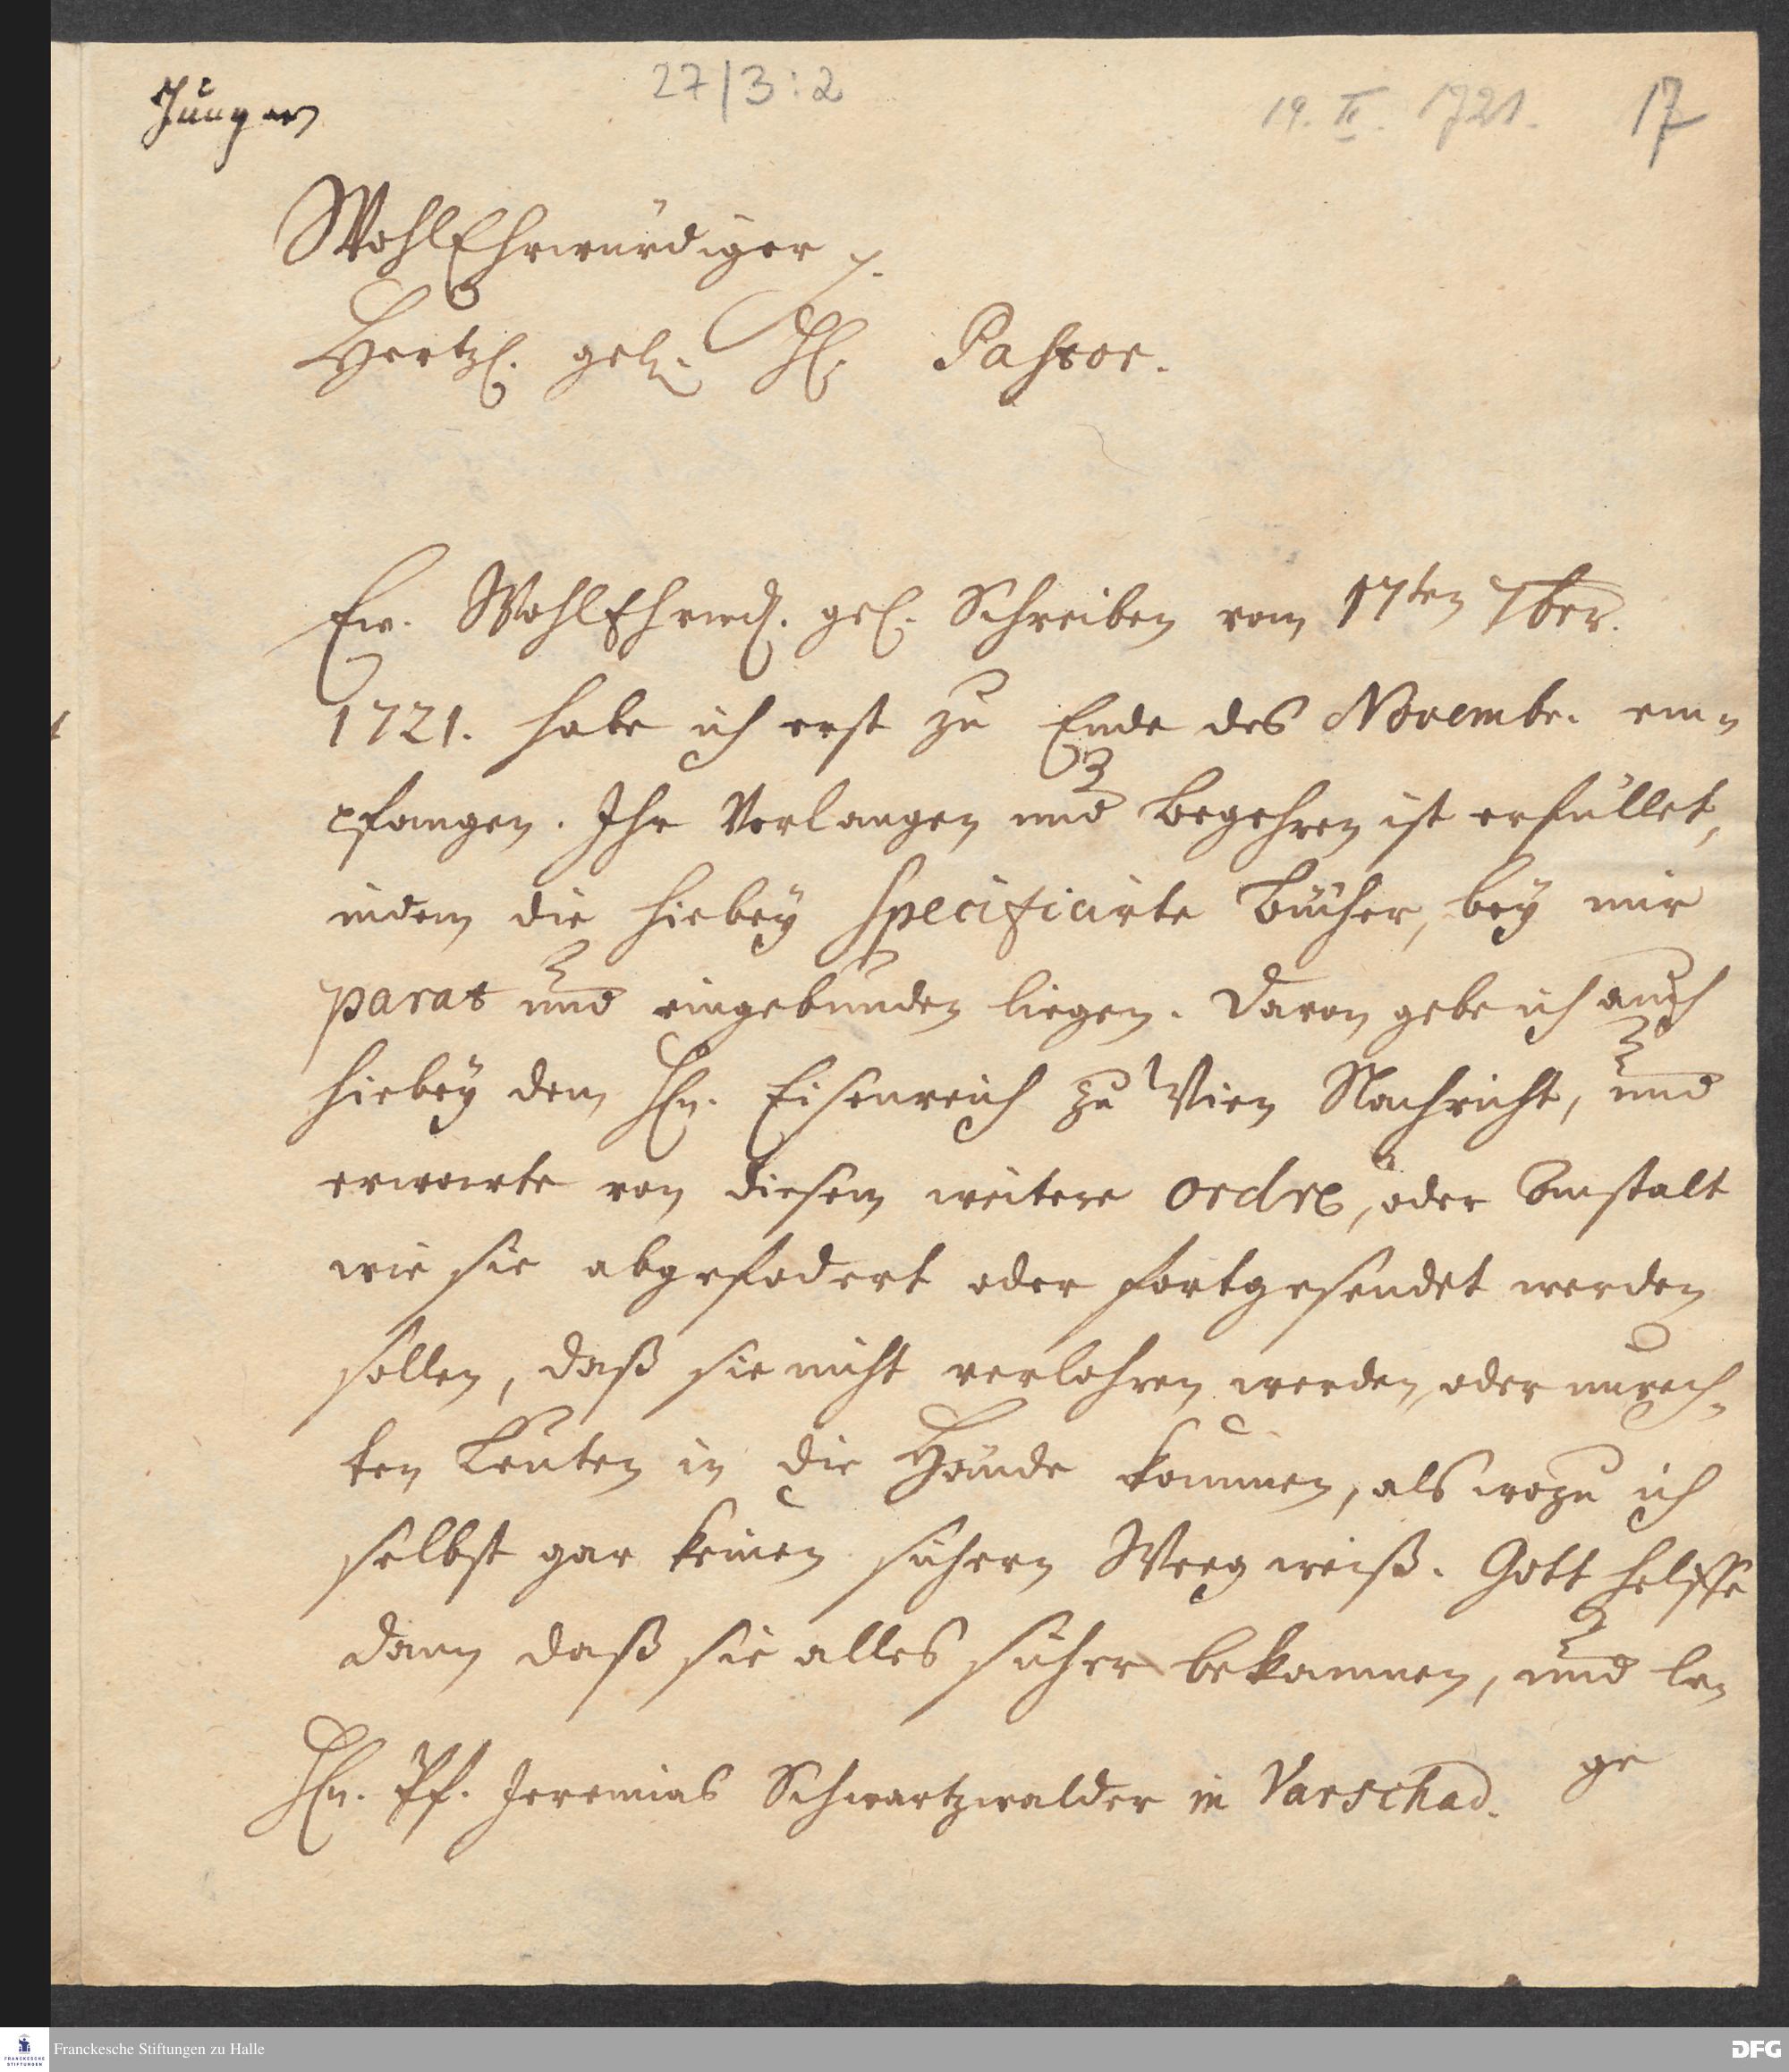 Ungarn
27/3:2
19. II. 1721.
17
WohlEhrwürdiger p.
Hertzl. gel. H. Pastor.
Ew. WohlEhrwd. gel. Schreiben vom 17ten 7ber.
1721. habe ich erst zu Ende des Novembr. em-
pfangen. Ihr Verlangen und begehren ist erfüllet,
indem die hiebey specificirte Bücher, bey mir
parat und eingebunden liegen. Davon gebe ich auch
hiebey dem Hn. Eisenreich zu Wien Nachricht, und
erwarte von diesem weitere ordre, oder Anstalt
wie sie abgefodert oder fortgesendet werden
sollen, daß sie nicht verlohren werden, oder unrech-
ten Leuten in die Hände kommen, als wozu ich
selbst gar keinen sichern Weeg weiß. Gott helffe
dann daß sie alles sicher bekommen, und lan-
ge
Hn. Pf. Jeremias Schwartzwalder in Varschad.
Franckesche Stiftungen zu Halle
DFG